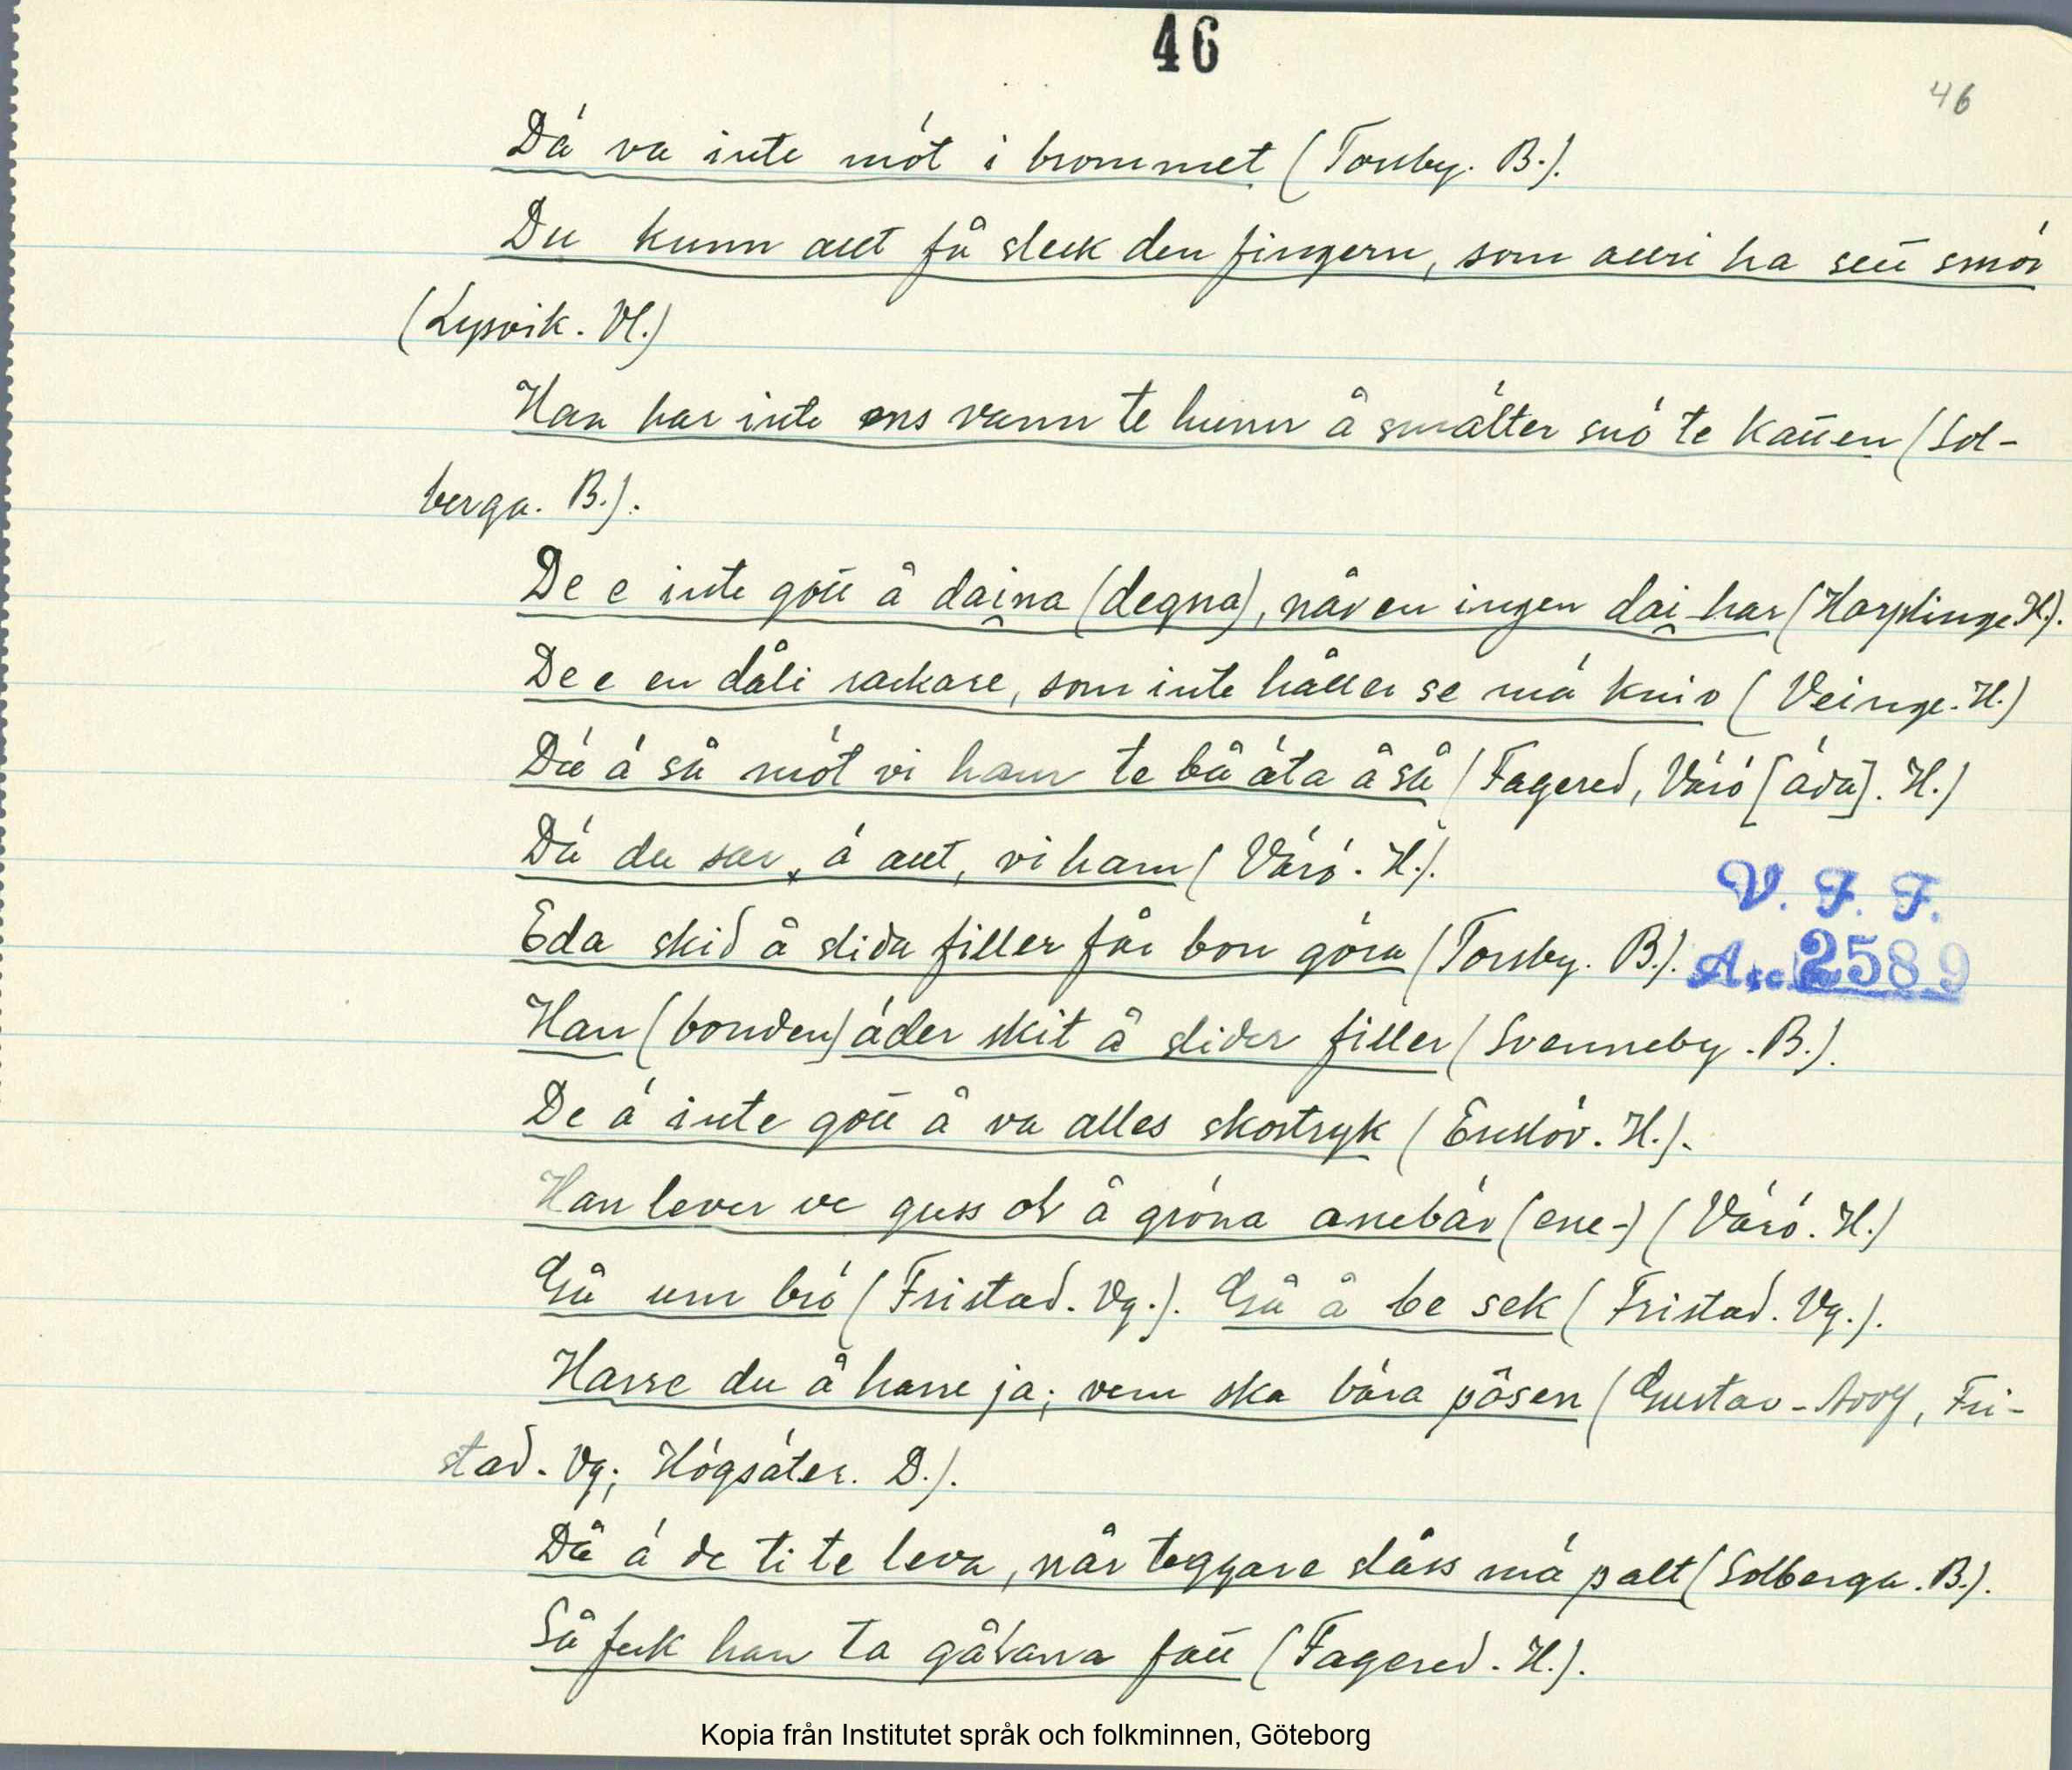 46
46
Dä va inte möt i brommet (Torsby. B.).
Du kunn allt få sleck den fingern, som alldri ha
(Lysvik. Vl.)
Han har inte ens vann te hunn å smälter snö te kallen (Sol-
berga. B.).
De e inte gott å daina (degna), når en ingen dai har (Harplinge H.).
De e en dåli rackare, som inte håller se mä kniv (Veinge. H.)
Dä ä så möt vi ham te bå äta å så (Fagered, Värö [äda]. H.)
Dä du sar, ä allt, vi ham (Värö. H.).
V. F. F.
Acc. 2589
Eda skid å slida filler får bon göra (Torsby. B.).
Han (bonden) äder skit å slider filler (Svenneby. B.).
De ä inte gott å va alles skostryk (Enslöv. H.).
Han lever ve guss ol å gröna anebär (ene-) (Värö. H.)
Gå um brö (Fristad. Vg.). Gå å be sek (Fristad. Vg.).
Harre du å harre ja; vem ska bära påsen (Gustav-Adolf, Fri-
stad. Vg; Högsäter. D.).
Då ä de ti te leva, når teggare slåss mä palt (Solberga. B.).
Så feck han ta gåvarna fatt (Fagered. H.).
Kopia från Institutet språk och folkminnen, Göteborg